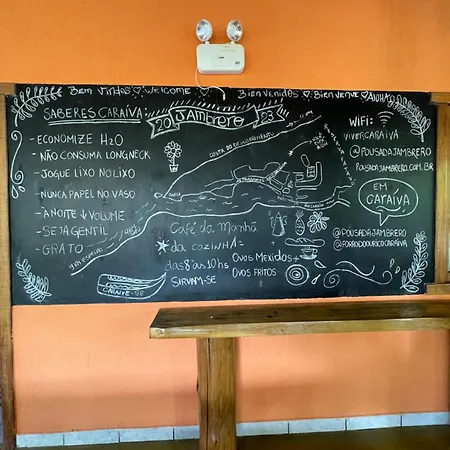 Bem Vindos ♡ Welcome ♡ Bienvenidos ♡ Bienvenue ♡ Aloha
SABERES CARAÍVA:
- ECONOMIZE H2O
- NÃO CONSUMA LONGNECK
- JOGUE LIXO NO LIXO
- NUNCA PAPEL NO VASO
- A NOITE ↓ VOLUME
- SEJA GENTIL
- GRATO
20 JAMBRERO 23
COSTA DO DESCOBRIMENTO
Café da Manhã
da cozinha
das 8 às 10hs
SIRVAM-SE
Ovos Mexidos
Ovos Fritos
WiFi:
VIVERCARAÍVA
@POUSADAJAMBRERO
POUSADAJAMBRERO.COM.BR
EM
CARAÍVA
@POUSADAJAMBRERO
@FORRODOOURICOCARAIVA